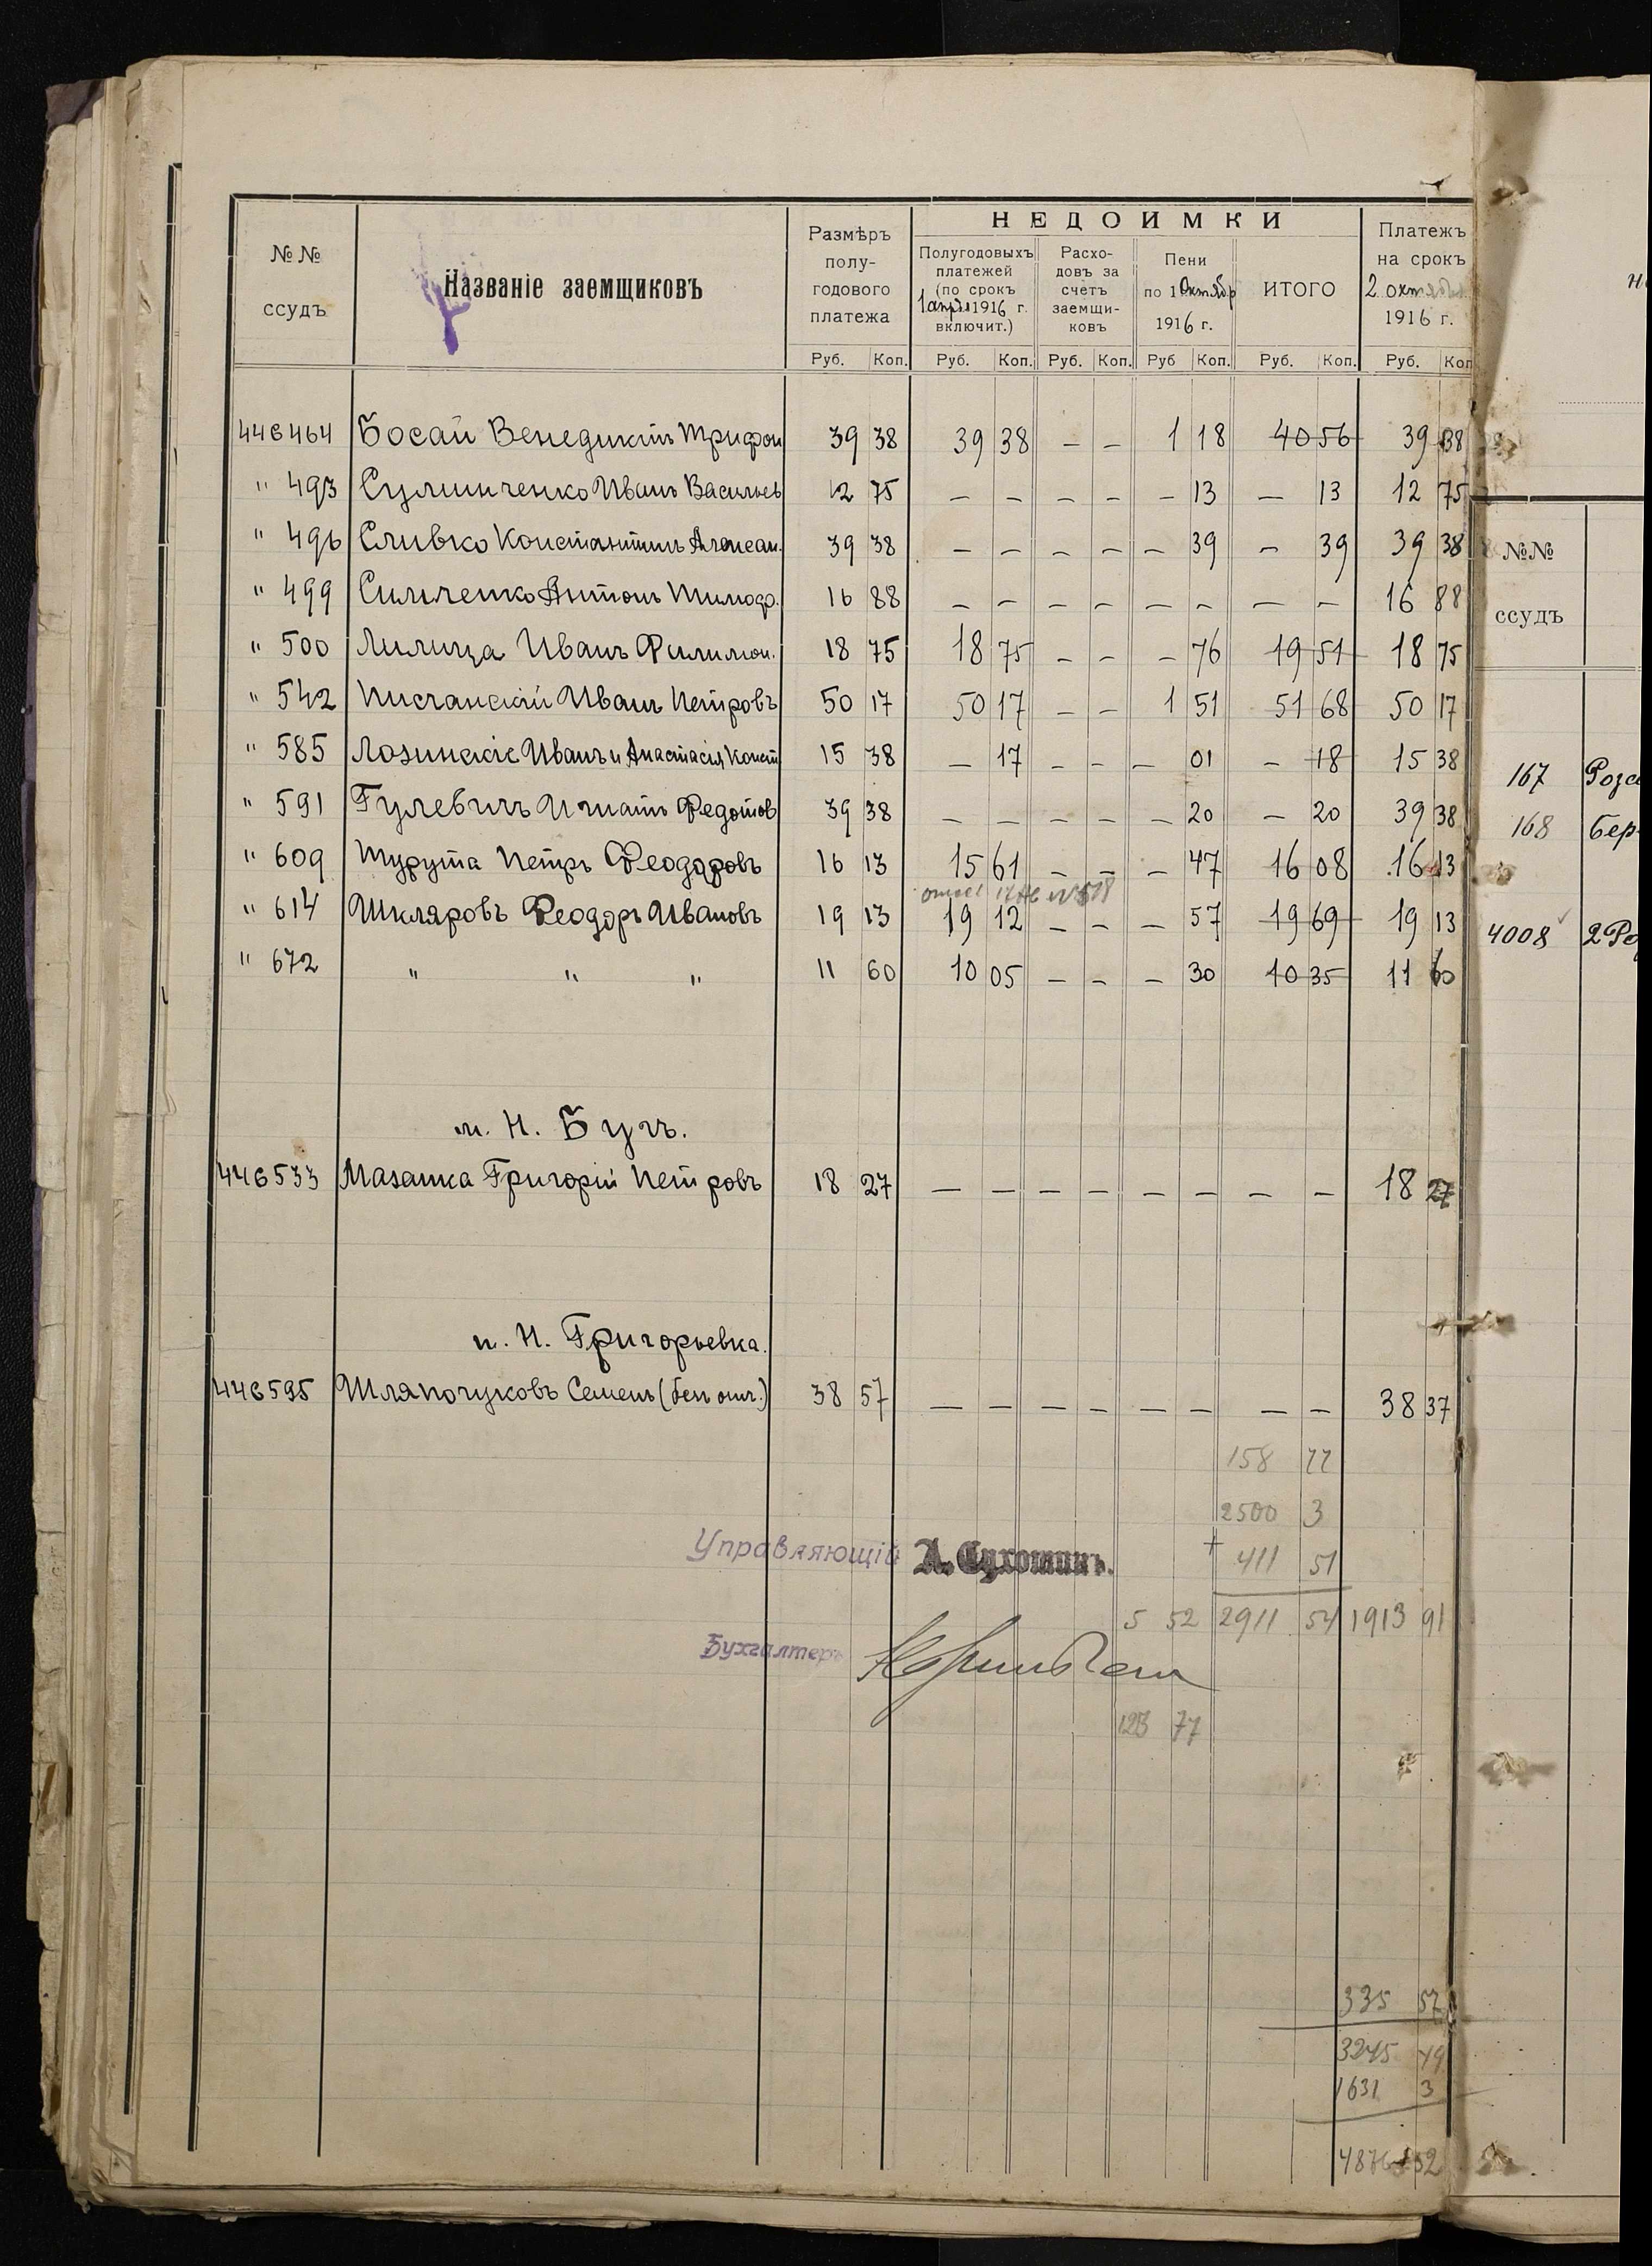 №№ ссудъ
Названіе заемщиковъ
Размѣръ полу-годового платежа
НЕДОИМКИ
Полугодовыхъ платежей (по срокъ 1 апрѣл 1916 г. включит.)
Расхо-довъ за счетъ заемщи-ковъ
Пени по 1 Октябр 1916 г.
ИТОГО
Платежъ на срокъ 2 октября 1916 г.
Руб. Коп. Руб. Коп. Руб. Коп. Руб Коп. Руб. Коп. Руб. Коп
446464 Босай Венедиктъ Трифон 39 38 39 38 – – 1 18 40 56 39 38
" 493 Сулинченко Иванъ Васильев 12 75 – – – – – 13 – 13 12 75
" 496 Сливко Константинъ Алексан. 39 38 – – – – – 39 – 39 39 38
" 499 Симченко Антонъ Тимофр. 16 88 – – – – – – – – 16 88
" 500 Лилица Иванъ Филимон. 18 75 18 75 – – – 76 19 51 18 75
" 542 Писчанскій Иванъ Петровъ 50 17 50 17 – – 1 51 51 68 50 17
" 585 Лозинскіе Иванъ и Анастасія Конст 15 38 – 17 – – – 01 – 18 15 38
" 591 Гулевичъ Игнатъ Федотов 39 38 – – – – – 20 – 20 39 38
" 609 Шурута Петръ Феодоровъ 16 13 15 61 – – – 47 16 08 16 13
" 614 Шкляровъ Феодоръ Ивановъ 19 13 19 12 – – – 57 19 69 19 13
" 672 " " " 11 60 10 05 – – – 30 10 35 11 60
м. Н. Бугъ.
446533 Мазанка Григорій Петровъ 18 27 – – – – – – – – 18 27
п. Н. Григорьевка.
446595 Шляпочуковъ Семенъ (безъ отч.) 38 57 – – – – – – – – 38 37
158 77
2500 3
Управляющій А. Сухотинъ.
+ 411 51
5 52 2911 54 1913 91
Бухгалтеръ
123 77
335 57
3245 49
1631 3
4876 52
№№ ссудъ
167 Роза
168 Бер
4008 2 Ро